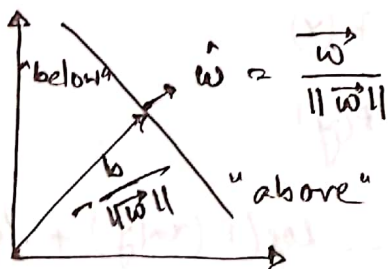 "below"
ŵ = w⃗ / ||w⃗||
- b / ||w⃗||
"above"